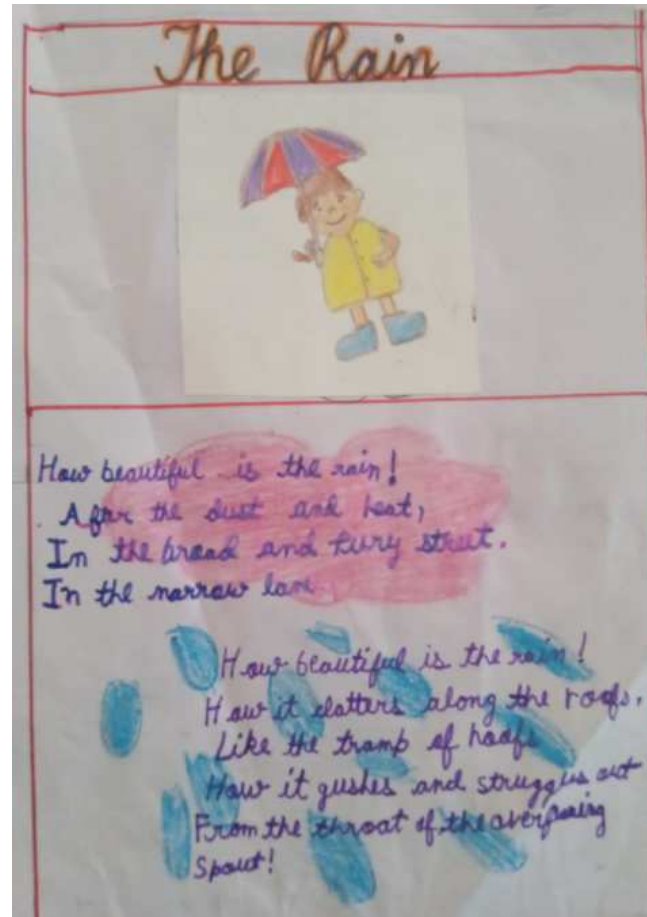 The Rain
How beautiful is the rain!
After the dust and heat,
In the broad and fury street.
In the narrow lane
How beautiful is the rain!
How it clatters along the roofs,
Like the tramp of hoofs
How it gushes and struggles out
From the throat of the overflowing
Spout!